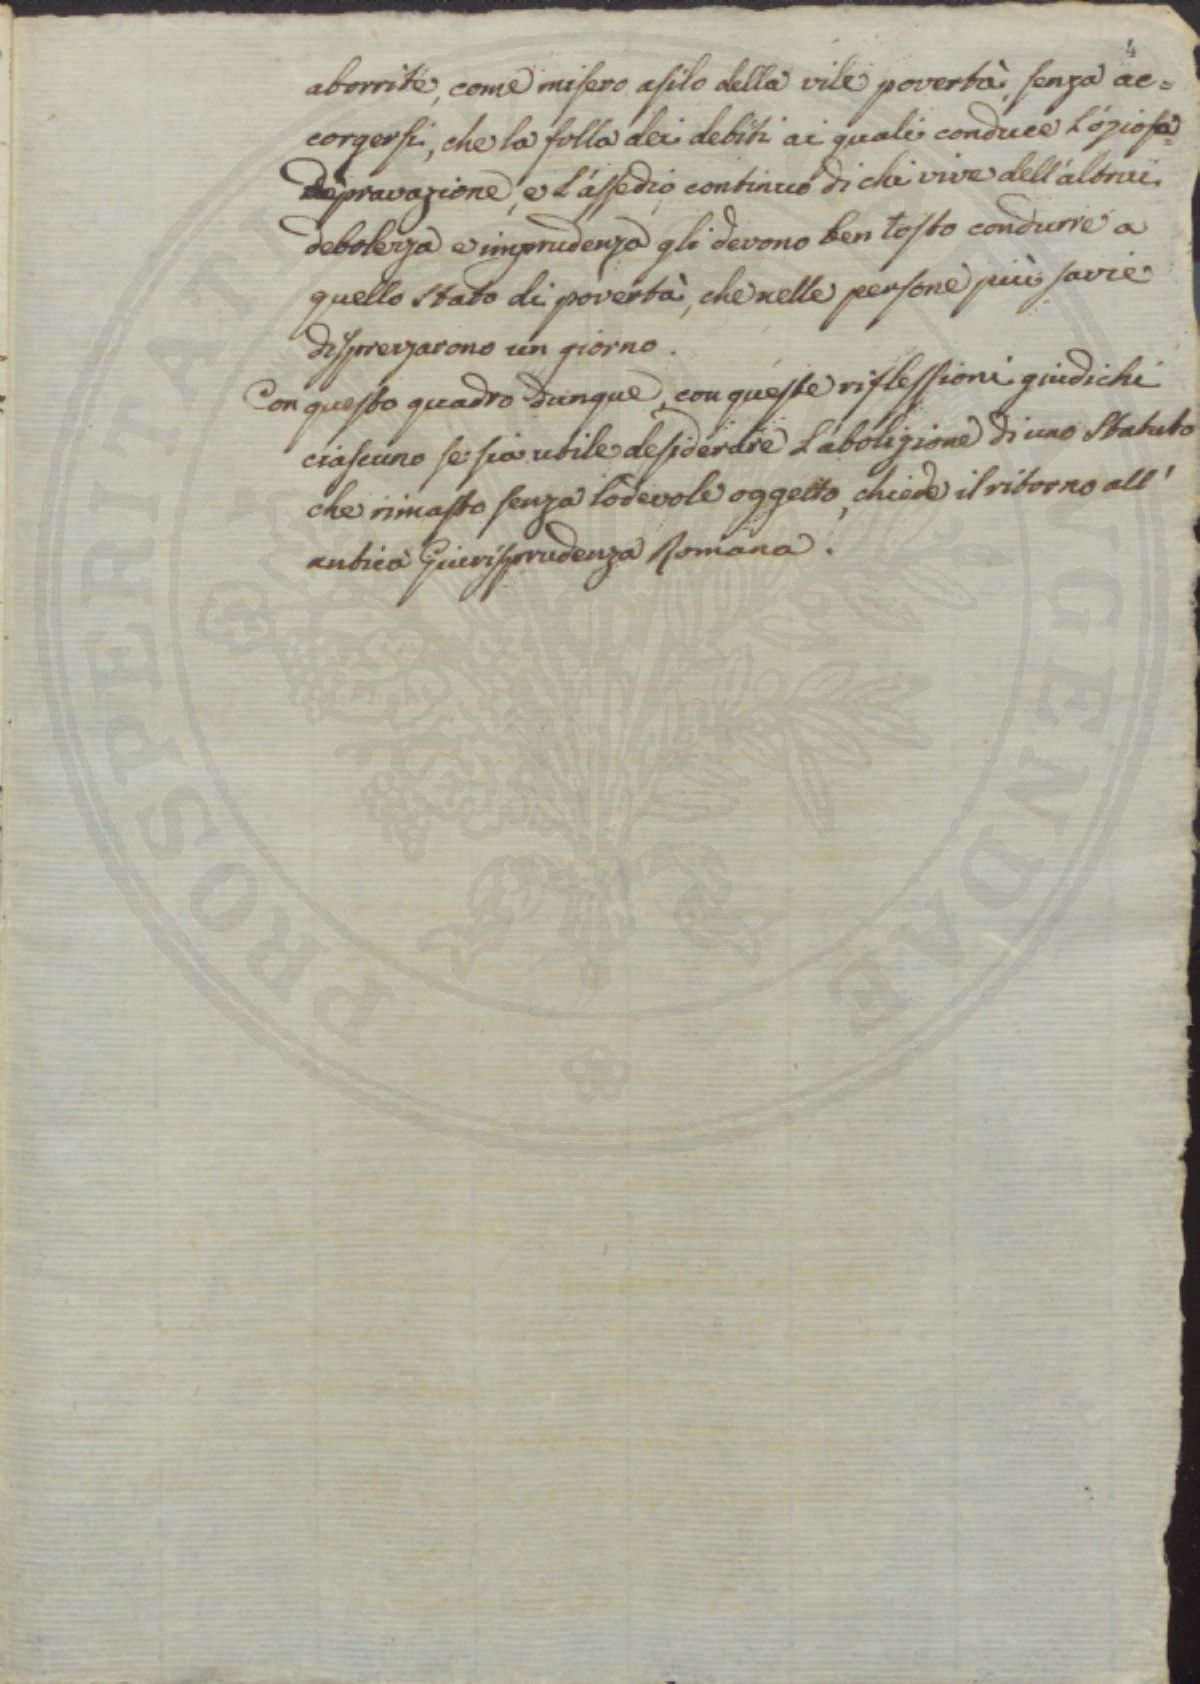 4
aborrite, come misero asilo della vile povertà, senza ac=
corgersi, che la folla dei debiti ai quali conduce l'oziosa
depravazione, e l'assedio continuo di chi vive dell'altrui
debolezza e imprudenza gli devono ben tosto condurre a
quello stato di povertà, che nelle persone più savie
disprezzarono un giorno.
Con questo quadro dunque, con queste riflessioni giudichi
ciascuno se sia utile desiderare l'abolizione di uno Statuto
che rimasto senza lodevole oggetto, chiede il ritorno all'
antica Giurisprudenza Romana.
PROSPERITATI AUGENDAE